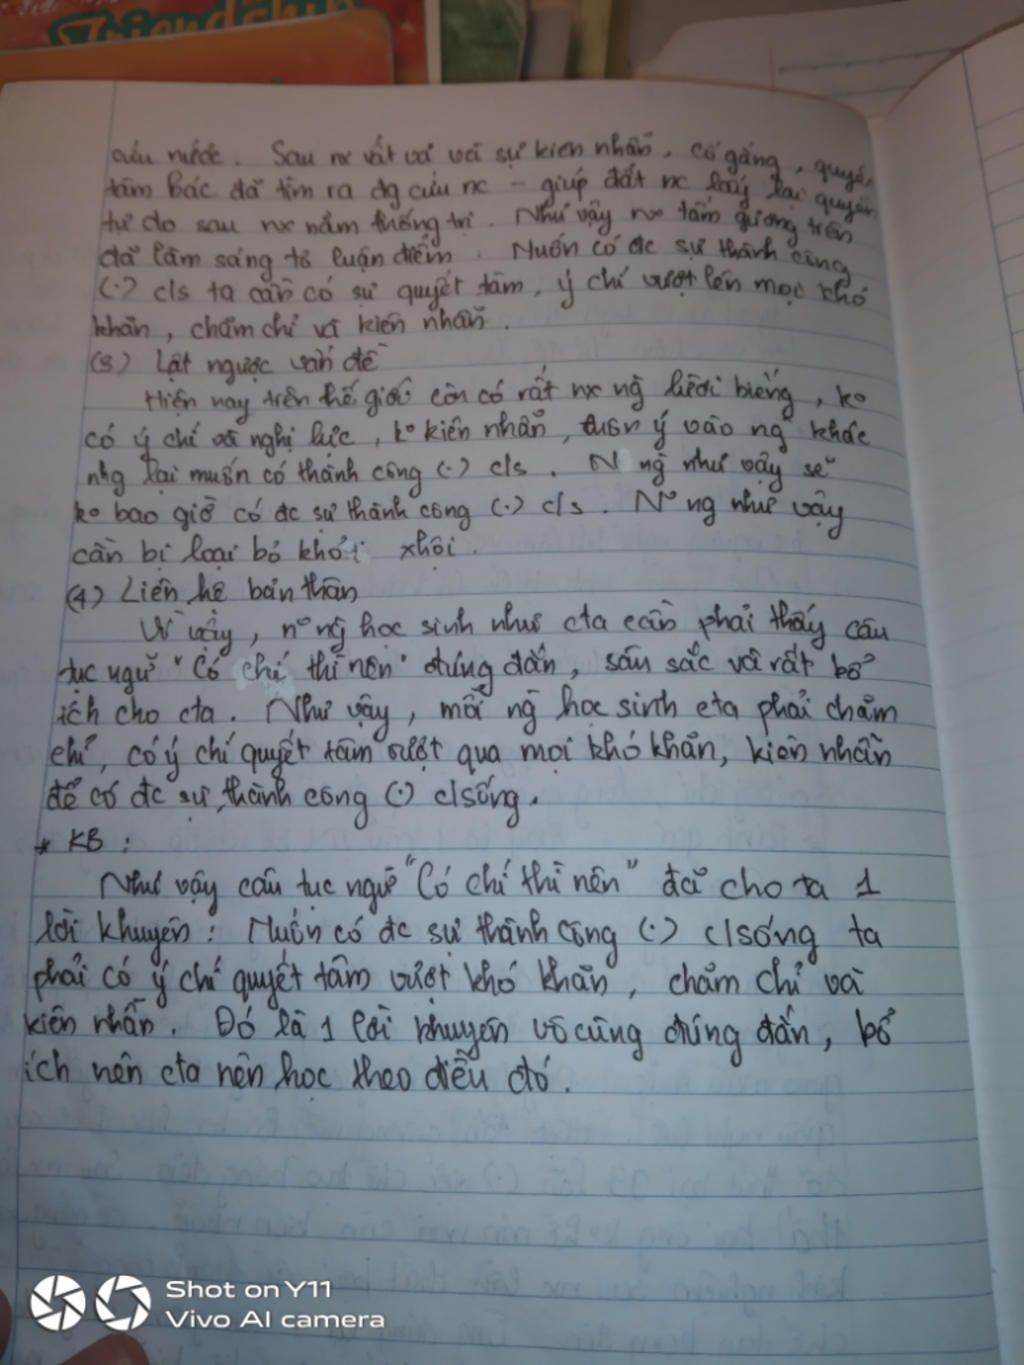 Friendship
cứu nước. Sau nx vất vả với sự kiên nhẫn, cố gắng, quyết
tâm Bác đã tìm ra đg cứu nc - giúp đất nc lấy lại quyền
tự do sau nx năm thống trị. Như vậy nx tấm gương trên
đã làm sáng tỏ luận điểm. Muốn có đc sự thành công
(.) c/s ta cần có sự quyết tâm, ý chí vượt lên mọi khó
khăn, chăm chỉ và kiên nhẫn.
(3) Lật ngược vấn đề
Hiện nay trên thế giới còn có rất nx ng lười biếng, ko
có ý chí và nghị lực, ko kiên nhẫn, ý vào ng khác
nhg lại muốn có thành công (.) c/s. N ng như vậy sẽ
ko bao giờ có đc sự thành công (.) c/s. No ng như vậy
cần bị loại bỏ khỏi xhội.
(4) Liên hệ bản thân
Vì vậy, no ng học sinh như cta cần phải thấy câu
tục ngữ "Có chí thì nên" đúng đắn, sâu sắc và rất bổ
ích cho cta. Như vậy, mỗi ng học sinh cta phải chăm
chỉ, có ý chí quyết tâm vượt qua mọi khó khăn, kiên nhẫn
để có đc sự thành công (.) c/sống.
* KB:
Như vậy câu tục ngữ "Có chí thì nên" đã cho ta 1
lời khuyên: Muốn có đc sự thành công (.) c/sống ta
phải có ý chí quyết tâm vượt khó khăn, chăm chỉ và
kiên nhẫn. Đó là 1 lời khuyên vô cùng đúng đắn, bổ
ích nên cta nên học theo điều đó.
Shot on Y11
Vivo AI camera